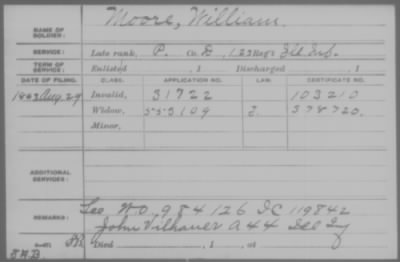 NAME OF SOLDIER: Moore, William.
SERVICE: Late rank, P. Co. D, 123 Reg't Ill Inf.
TERM OF SERVICE: Enlisted , 1 Discharged , 1
DATE OF FILING. CLASS. APPLICATION NO. LAW. CERTIFICATE NO.
1863 Aug. 29 Invalid, 31722 103210
Widow, 555109 378720.
Minor,
ADDITIONAL SERVICES:
REMARKS: See W.O. 984126 DC 119842
John Vilhauer A 44 Ill Inf
Died , 1 , at